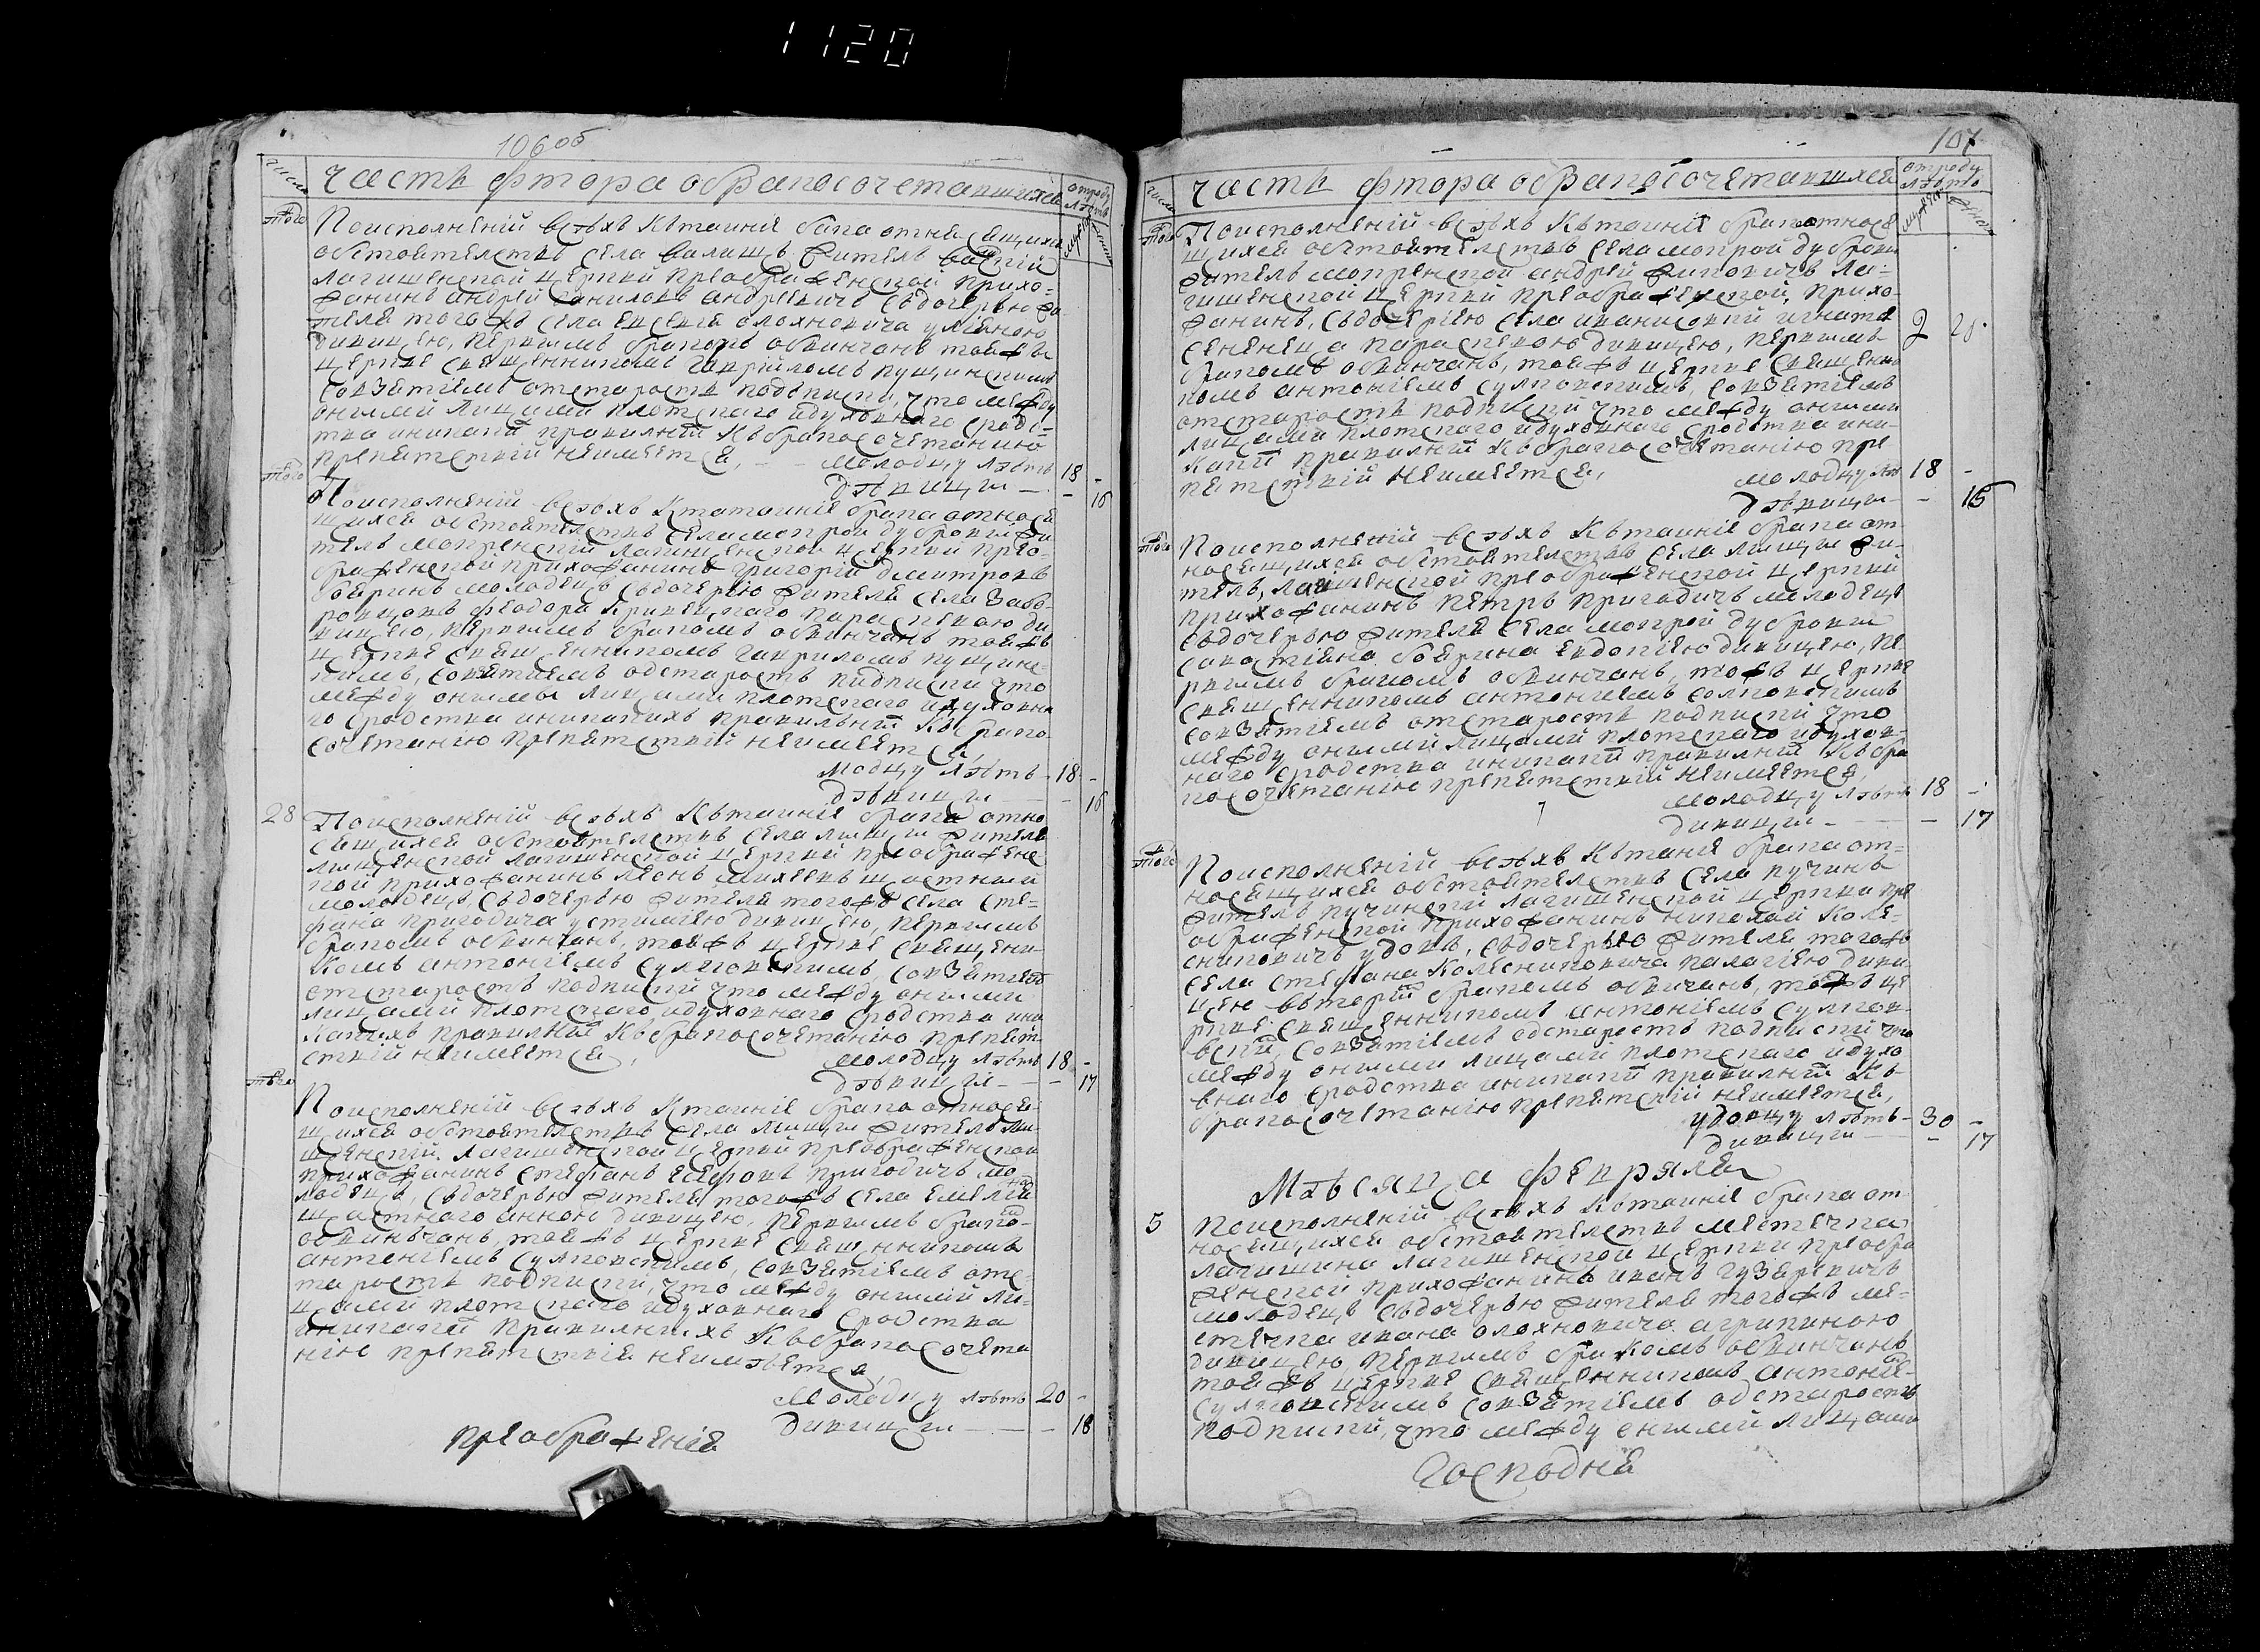 1120
106об
число
часть фтора обрапосочетавшихся
отроду лѣтъ
тогож
Поисполненій всѣхъ Кътаинѣ брапа относящихся
обстоятелствъ села валищъ житель
логишенской церкви преображенской прихо-
жанинъ андрей андреевичъ съдочерью жи-
теля тогожъ села олохновича уляною
дивицею, первымъ брапомъ обвинчанъ тоейжъ
церкве священникомъ гаврійломъ пущинскимъ
совзятіемъ отстаростъ подписки, что между
оными лицами плотскаго идуховнаго сродс-
тва инипакіи правилніи Кбрапосочетанию
препятствій неимѣется, — молодцу лѣтъ 18 -
дѣвицы — - 16
тогож
Поисполненій всѣхъ Ктаинѣ брапа относя
щихся обстоятелствъ села мопрой дубровы жи
тель мопренскій логишенской церкви прео-
браженской прихожанинъ григорій дмитровъ
бояринъ молодецъ съдочерію жителя села Забо-
ровцовъ феодора Кривецкаго параскевою ди
вицею, первымъ брапомъ обвинчанъ тоейжъ
церкве священникомъ гавриломъ пущин-
скимъ, совзятіемъ одстаростъ подписки что
между оными лицами плотскаго идуховна
го сродства инипакихъ правилніи Кбрапо
сочетанию препятствій неимѣется,
Модцу лѣтъ 18 -
дѣвицы - 16
28
Поисполненій всѣхъ Кътаинѣ брапа отно
сящихся обстоятелствъ села лищы житель
лищенской логишенской церкви преображен-
ской прихожанинъ леонъ михеевъ щастный
молодецъ, съдочерью жителя тогожъ села сте-
фана пригодича устимѣю дивицею, первымъ
брапомъ обвинчанъ, тоейжъ церкве священни-
Комъ антоніемъ сулковскимъ, совзятіемъ
отстаростъ подписки что между оными
лицами плотскаго идуховнаго сродства ини
Какихъ правилніи Кобрапосочетанію препят-
ствій неимѣется, молодцу лѣтъ 18 -
дѣвицы - - 17
тогож
Поисполненій всѣхъ Ктаинѣ брапа относя-
щихся обстоятелствъ села лищы житель ли-
щенскій логишенской церкви преображенской
прихожанинъ стефанъ пригодичъ мо-
лодецъ, съдочерью жителя тогожъ села
щастнаго анною дивицею, первымъ брапо-
обвинчанъ, тоейжъ церкве священникомъ
антоніемъ сулковскимъ, совзятіемъ отс-
таростъ подписки, что между оными ли-
цами плотскаго идуховнаго сродства
инипакіи правилныхъ Кобрапосочета
нію препятствія неимѣется
Молодцу лѣтъ 20 -
дивицы — - 18
преображеніе
107
число
часть фтора обрапосочетавшихся
отроду лѣтъ
тогож
Поисполненій всѣхъ Кътаинѣ брапа относя
щихся обстоятелствъ села мопрой дубровы
житель мопренской андрей ло-
гишенской церкви преображенской, прихо
жанинъ, съдочерію села иваниски игната
параскевою дивицею, первымъ
брапомъ обвинчанъ, тоейжъ церкве священи
комъ антоніемъ сулковскимъ, совзятіемъ
отстаростъ подписки что между оными
лицами плотскаго идуховнаго сродства ини
какіи правилніи Кобрапосочетанію пре
пятствій неимѣется, молодцу лѣт 18 -
дѣвицы - 16
тогож
Поисполненій всѣхъ Кътаинѣ брапа от
носящихся обстоятелствъ села лищы жи-
тель, логишенской преображенской церкви
прихожанинъ петръ пригодичъ молодецъ
съдочерью жителя села мопрой дубровы
савостіяна боярина евдокіею дивицею, пе
рвымъ брапомъ обвинчанъ, тоежъ церкве
священникомъ антоніемъ солковскимъ
совзятіемъ отстаростъ подписки что
между оными лицами плотскаго идухов-
наго сродства инипакіи правилніи Кбра
посочетанію препятствій неимѣется,
молодцу лѣтъ 18 -
дивицы - - 17
тогож
Поисполненій всѣхъ Кътаинѣ брапа от-
носящихся обстоятелствъ села пучинъ
житель пучинскій логишенской церкви пре
ображенской прихожанинъ николай Коле-
сниковичъ удовъ, съдочерью жителя тогожъ
села стефана Колесниковича палагіею диви-
цею вторіи брапомъ обвичанъ, тоежъ це
ркве священникомъ антоніемъ сулков-
скій, совзятіемъ одстаростъ подписки что
между оными лицами плотскаго идухо
внаго сродства инипакіи правилніи Къ
брапосочетанію препятскій неимѣется,
удовцу лѣтъ - 30 -
дивицы - 17
Мѣсяца февраля
5
поисполненій всѣхъ Кътаинѣ брапа от
носящихся обстоятелствъ местечка
логишина логишенской церкви преобра
женской прихожанинъ иванъ гузаревичъ
молодецъ съдочерью жителя тогожъ ме-
стечка ивана олохновича агрипиною
дивицею, первымъ браКомъ обвинчанъ
тоейжъ церкве священникомъ антоніе-
сулковскимъ совзятіемъ одстаростъ
подписки, что между оными лицами
Господне